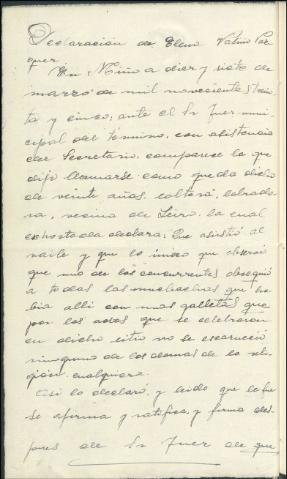 Declaración de Elena
quez
En Miño a diez y siete de
marzo de mil novecientos trein
ta y cinco; ante el Sr Juez mu
cipal del término, con asistencia
del Secretario, comparece la que
dijo llamarse como queda dicho
de veinte años, soltera, labrado
ra, vecina de Leiro, la cual
exhortada declara: Que asistió al
baile y que lo único que observó
que uno de los concurrentes obsequió
a todas las muchachas que ha
bia alli con unas galletas, que
por los actos que se celebraron
en dicho sitio no se escarneció
ninguno de los dogmas de la reli
gión cualquiera.
Asi lo declaró, y leido que le fué
se afirma y ratifica, y firma des
pues de Sr Juez de que